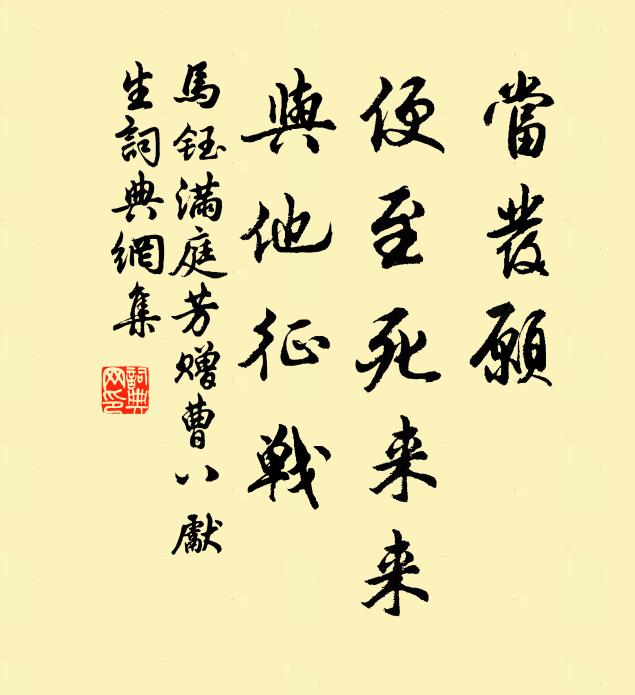 當發願
便至死来来
與他征戰
馬鈺满庭芳赠曹八獻
生詞典網集
詞典网印